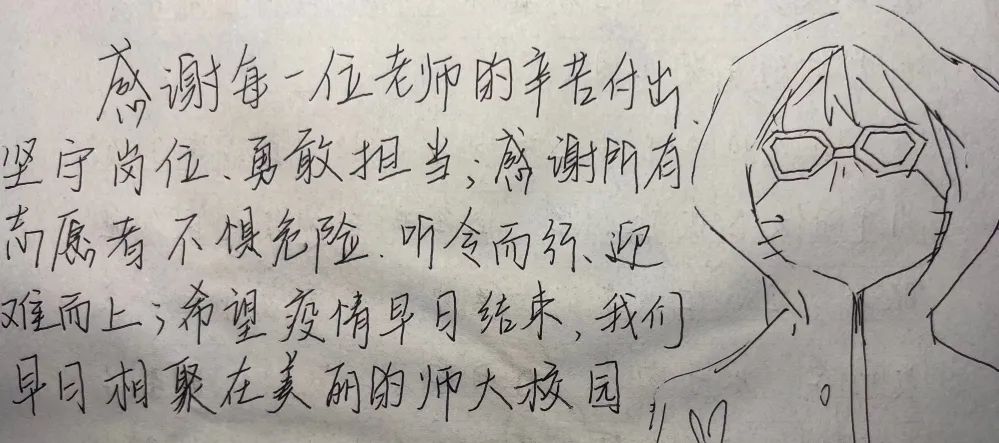 感谢每一位老师的辛苦付出、
坚守岗位、勇敢担当；感谢所有
志愿者不惧危险、听令而行、迎
难而上；希望疫情早日结束，我们
早日相聚在美丽的师大校园